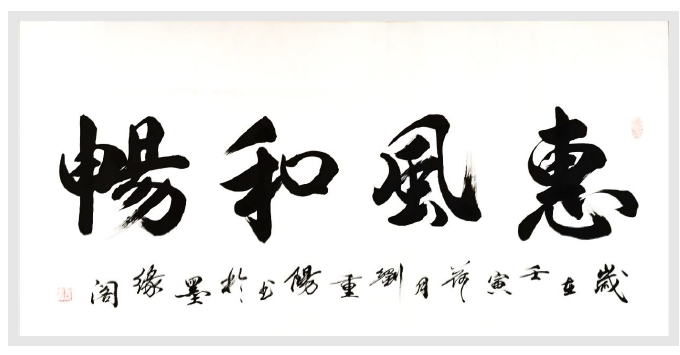 惠風和暢
歲在壬寅荷月劉重陽书於墨緣阁